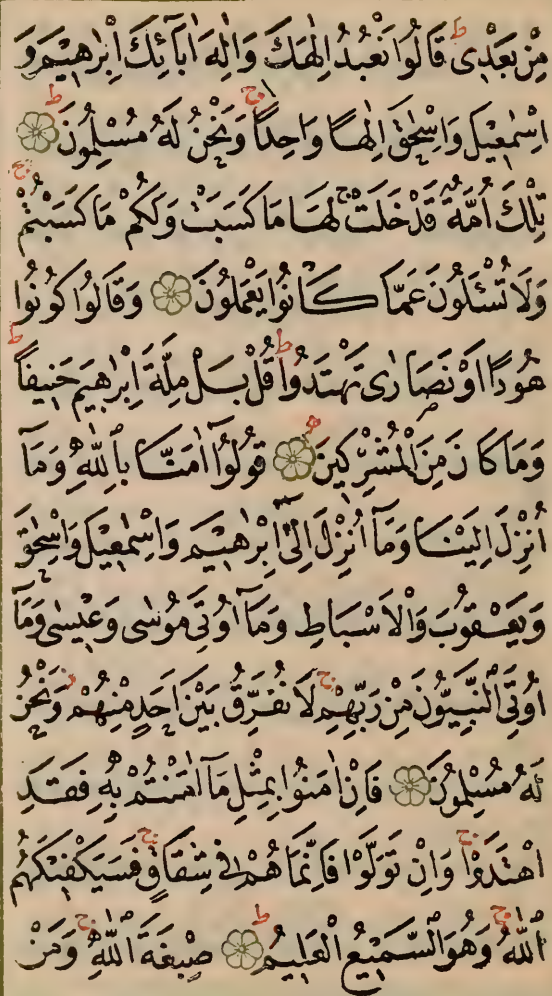 مِنْ بَعْدِى ط قَالُوا نَعْبُدُ اِلٰهَكَ وَاِلٰهَ اٰبَآئِكَ اِبْرٰهٖيمَ وَ
اِسْمٰعٖيلَ وَاِسْحٰقَ اِلٰهًا وَاحِدًا ج وَنَحْنُ لَهُ مُسْلِمُونَ ط
تِلْكَ اُمَّةٌ قَدْ خَلَتْ ج لَهَا مَا كَسَبَتْ وَلَكُمْ مَا كَسَبْتُمْ ج
وَلَا تُسْئَلُونَ عَمَّا كَانُوا يَعْمَلُونَ وَقَالُوا كُونُوا
هُودًا اَوْ نَصَارٰى تَهْتَدُوا ط قُلْ بَلْ مِلَّةَ اِبْرٰهٖيمَ حَنٖيفًا ط
وَمَا كَانَ مِنَ الْمُشْرِكٖينَ قُولُوا اٰمَنَّا بِاللّٰهِ وَمَا
اُنْزِلَ اِلَيْنَا وَمَا اُنْزِلَ اِلٰى اِبْرٰهٖيمَ وَاِسْمٰعٖيلَ وَاِسْحٰقَ
وَيَعْقُوبَ وَالْاَسْبَاطِ وَمَا اُوتِىَ مُوسٰى وَعٖيسٰى وَمَا
اُوتِىَ النَّبِيُّونَ مِنْ رَبِّهِمْ ج لَا نُفَرِّقُ بَيْنَ اَحَدٍ مِنْهُمْ وَنَحْنُ
لَهُ مُسْلِمُونَ فَاِنْ اٰمَنُوا بِمِثْلِ مَا اٰمَنْتُمْ بِهٖ فَقَدِ
اهْتَدَوْا ج وَاِنْ تَوَلَّوْا فَاِنَّمَا هُمْ فٖى شِقَاقٍ ج فَسَيَكْفٖيكَهُمُ
اللّٰهُ ج وَهُوَ السَّمٖيعُ الْعَلٖيمُ ط صِبْغَةَ اللّٰهِ ج وَمَنْ